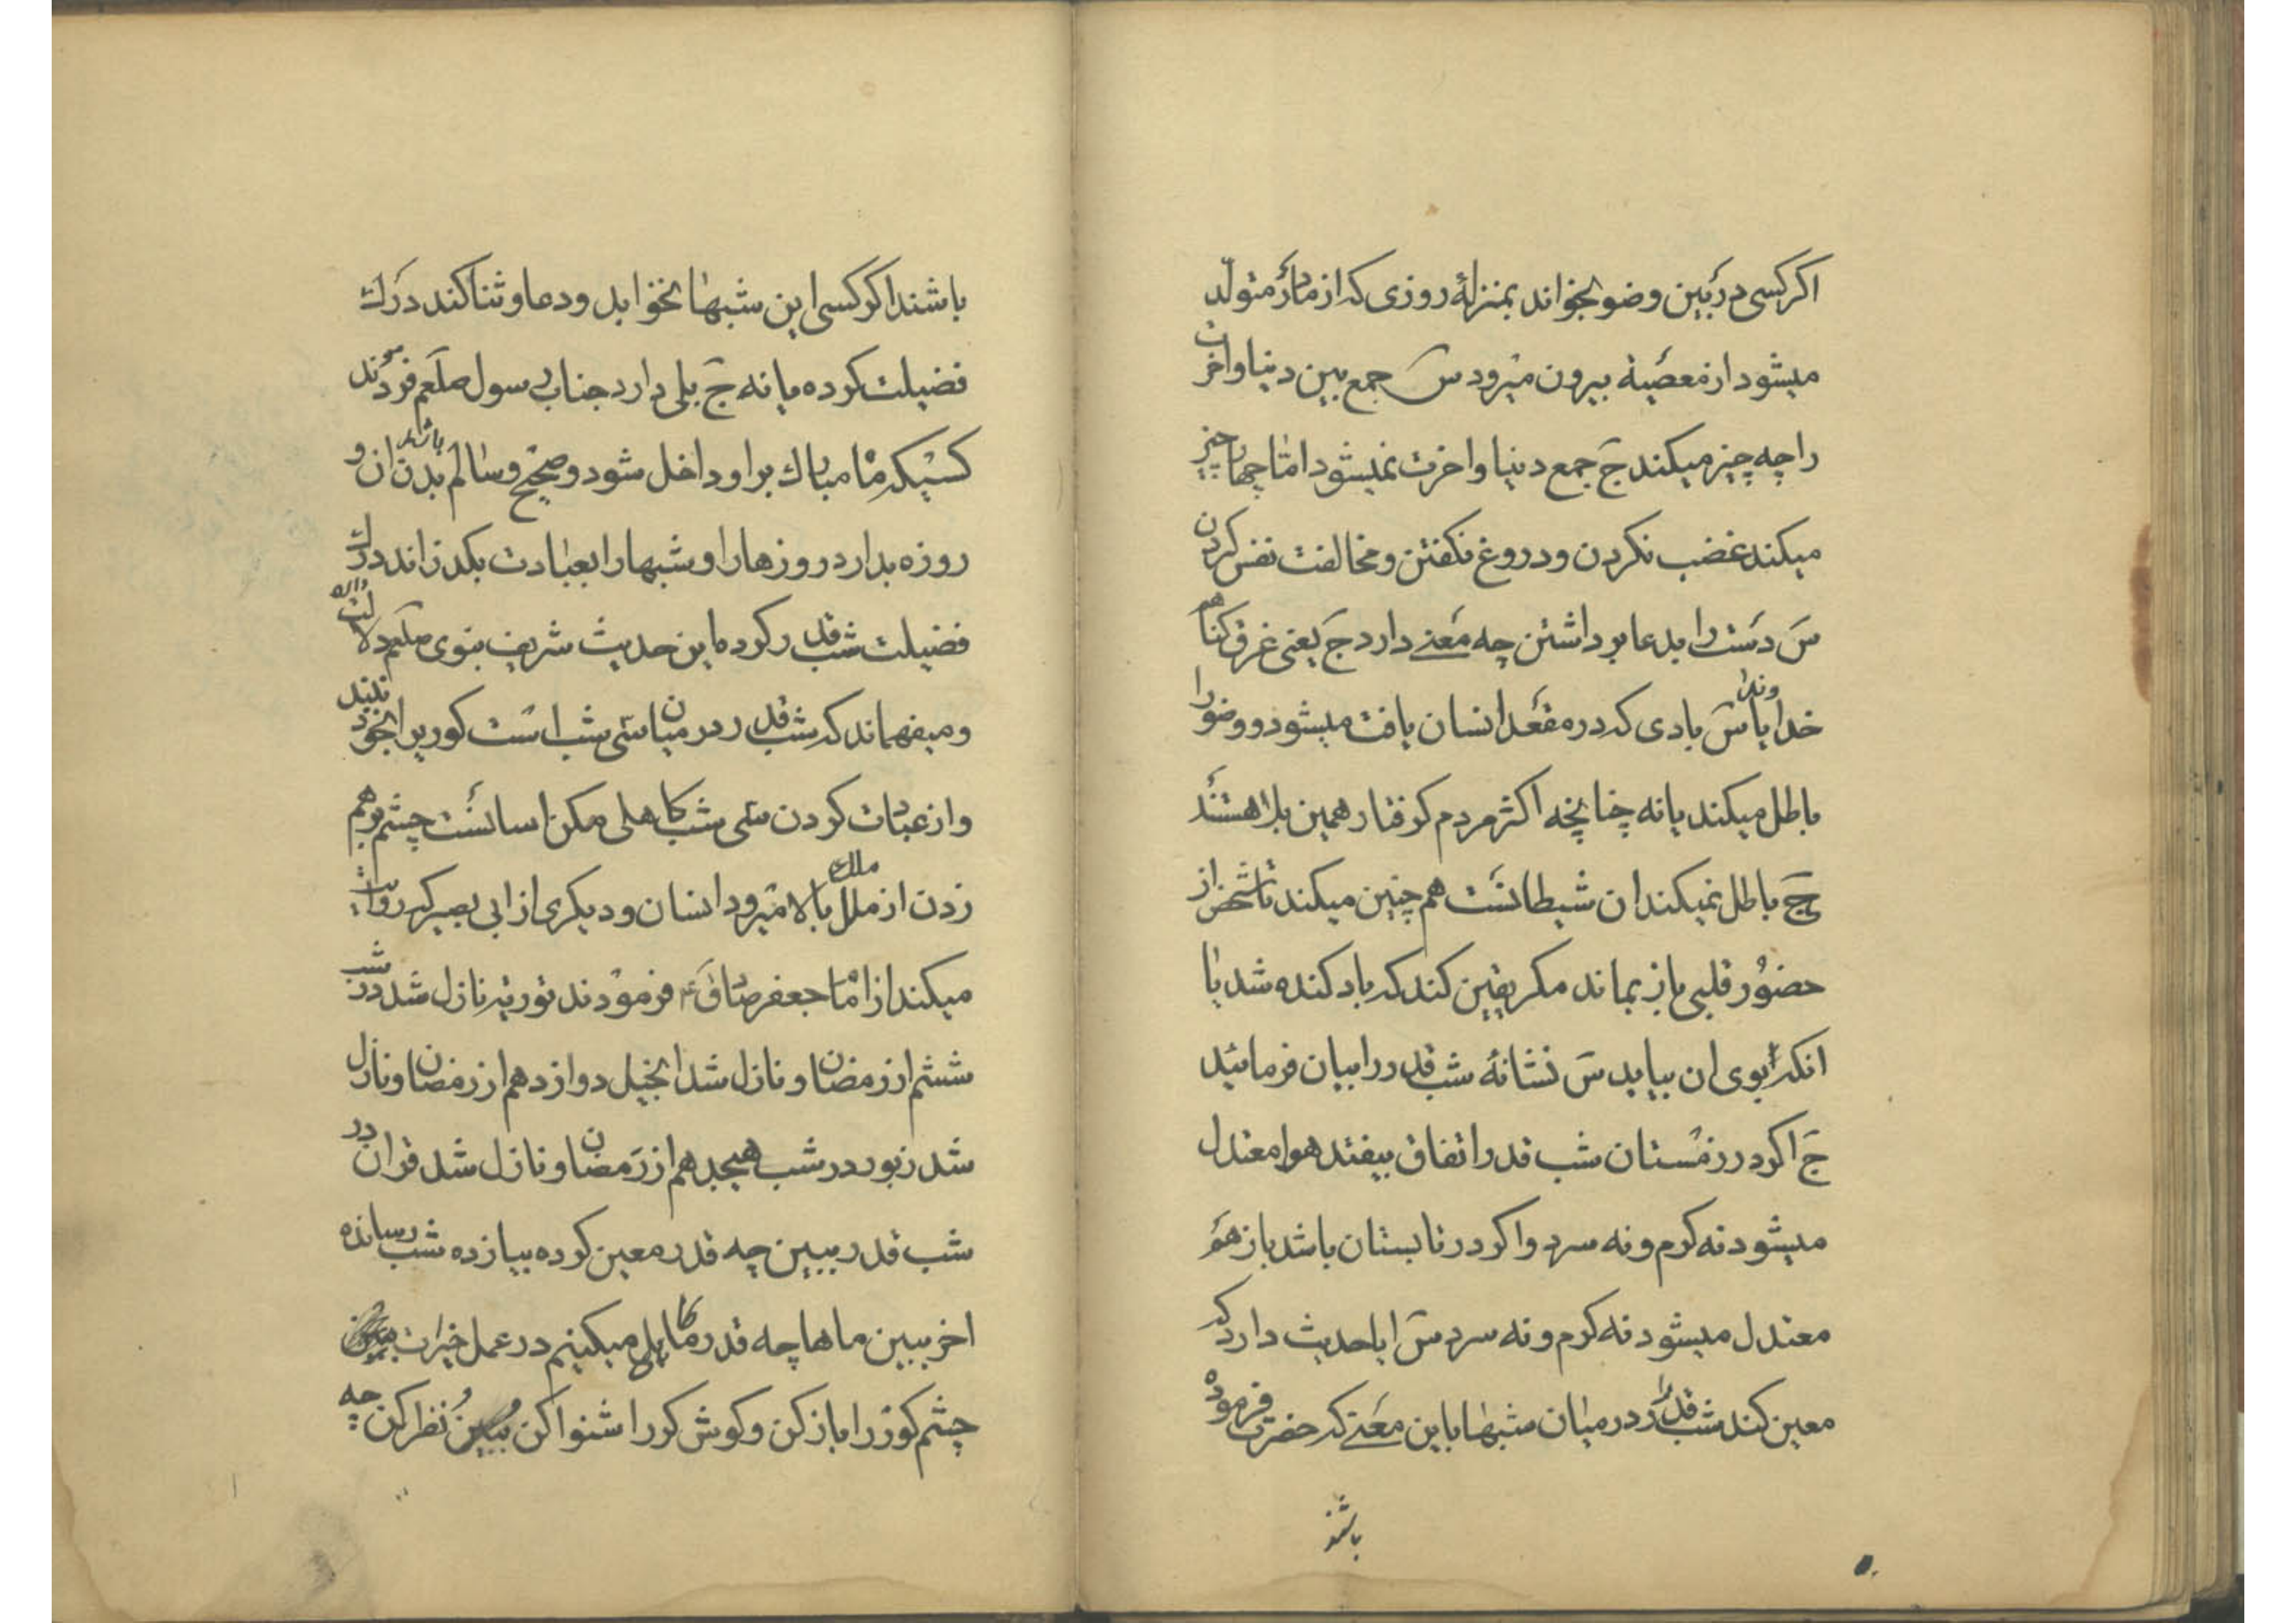 اکر کسی در بین وضو بخواند بمنزلهٔ روزی که از مادر متولّد
میشود از معصیة بیرون میرود سَ جمع بین دنیا واخرت
را چه چیز میکند جَ جمع دنیا واخرت نمیشود امّا چهار چیز
میکند غضب نکردن و دروغ نکفتن و مخالفت نفس کردن
سَ دست را بدعا برداشتن چه معنے دارد جَ یعنی غرق کناهم
خدایا وندا سَ بادی که در مقعد انسان یافت میشود و وضو را
باطل میکند یا نه چنانچه اکثر مردم کرفتار همین بلا هستند
جَ باطل نمیکند ان شیطانست هم چنین میکند تا شخص از
حضور قلبی باز بماند مکر یقین کند که باد کنده شد یا
انکه بوی ان بیاید سَ نشانهٔ شب قدر را بیان فرمائید
جَ اکر در زمستان شب قدر اتفاق بیفتد هوا معتدل
میشود نه کرم و نه سرد و اکر در تابستان باشد باز هم
معتدل میشود نه کرم و نه سرد سَ ایا حدیث دارد که
معین کند شب قدر را در میان شبها باین معنے که حضرت فرموده
باشند
باشند اکر کسی این شبها نخوابد و دعا و ثنا کند درك
فضیلت کرده یا نه جَ بلی دارد جناب رسول صلعم فرمودند
کسیکه ماه مبارك بر او داخل شود و صحیح و سالم باشد بدن ان و
روزه بدارد روزها را و شبها را بعبادت بکذراند درك
فضیلت شب قدر کرده این حدیث شریف نبوی صلعم دلالت دارد
و میفهماند که شب قدر در میان سی شب است کور برا بخود نبندد
و از عبادت کردن سی شب کاهلی مکن اسانست چشم بر هم
زدن از ملك بالا میرود انسان و دیکری از ابی بصیر که روایت
میکند از امام جعفر صادق ع فرمودند توریة نازل شد در شب
ششم از رمضان و نازل شد انجیل دوازدهم از رمضان و نازل
شد زبور در شب هیجدهم از رمضان و نازل شد قران در
شب قدر ببین چه قدر معین کرده بیازده شب رسانده
اخر ببین ماها چه قدر کاهلی میکنیم در عمل خیرات
چشم کور را باز کن و کوش کر را شنوا کن نظر کن چه